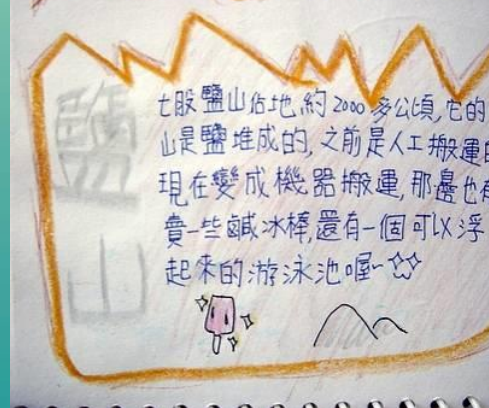 七股鹽山佔地約2000多公頃,它的
山是鹽堆成的,之前是人工搬運的
現在變成機器搬運,那邊也有
賣一些鹹冰棒,還有一個可以浮
起來的游泳池喔~
鹽山